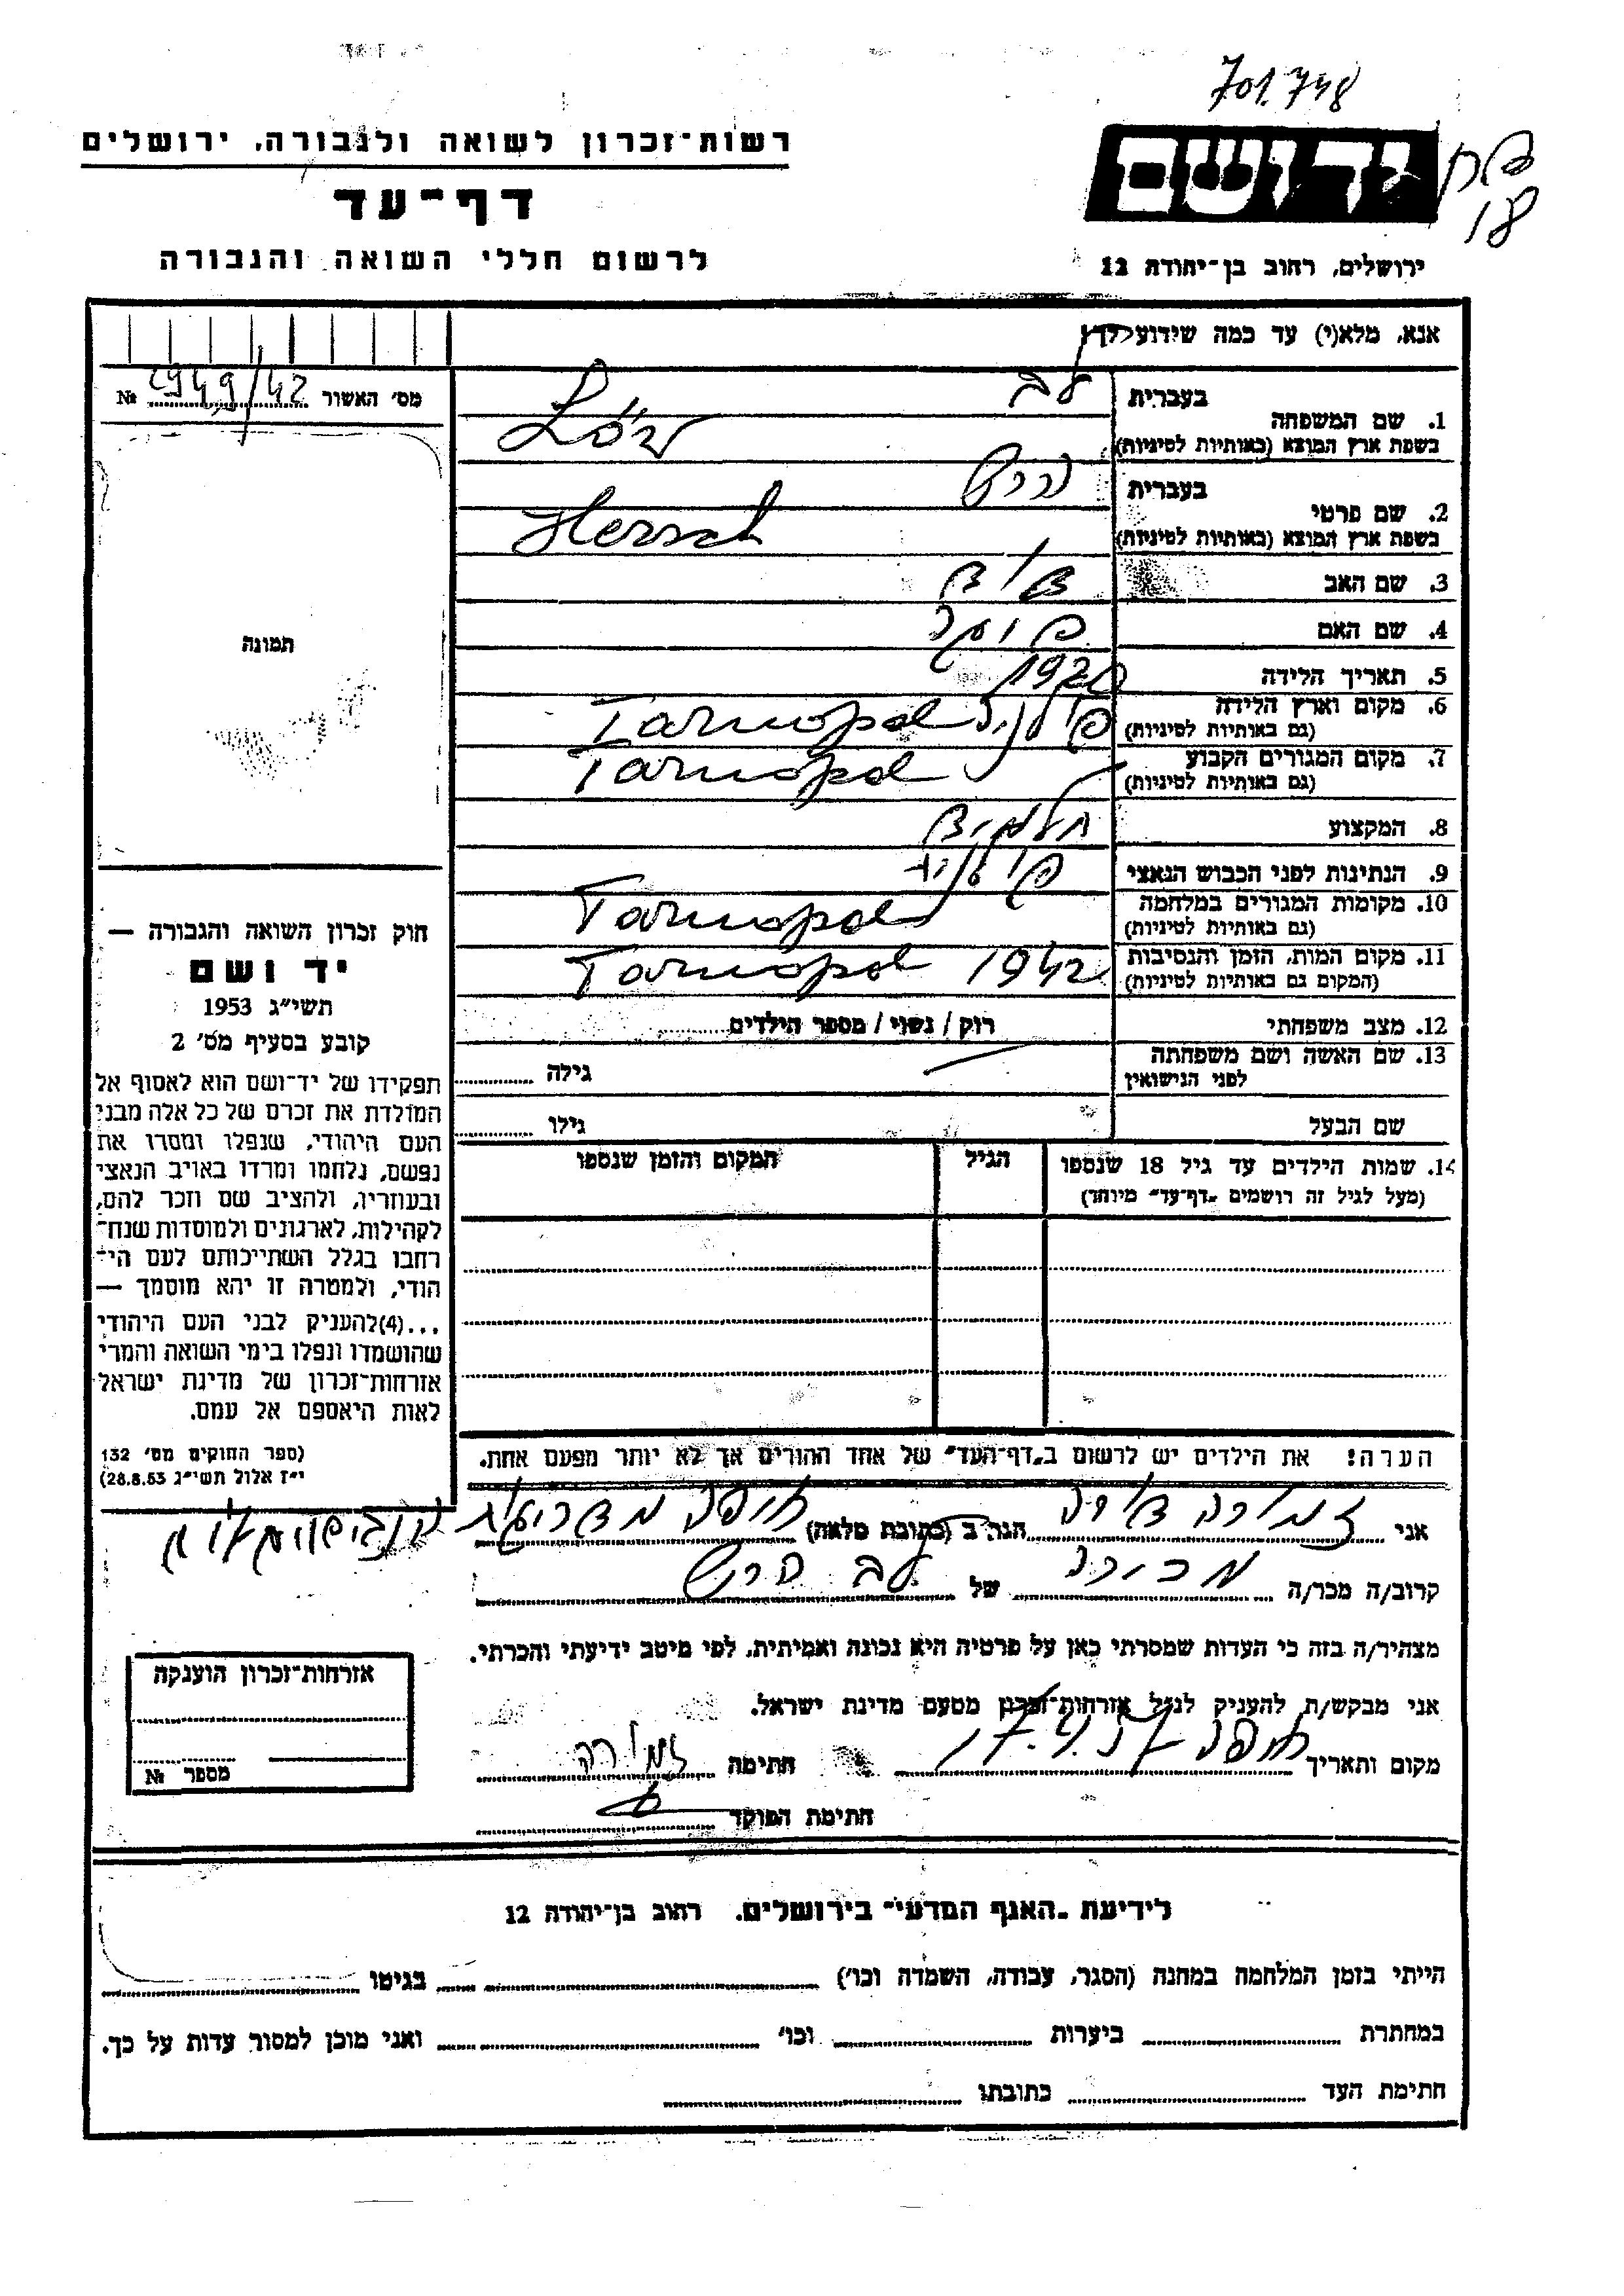 701.748
ידושם
18
רשות־זכרון לשואה ולגבורה, ירושלים
דף־עד
לרשום חללי השואה והגבורה
ירושלים, רחוב בן־יהודה 12
אנא, מלא(י) עד כמה שידוע לך
מס׳ האשור 2949/42 №
תמונה
חוק זכרון השואה והגבורה —
יד ושם
תשי״ג 1953
קובע בסעיף מס׳ 2
תפקידו של יד־ושם הוא לאסוף אל
המולדת את זכרם של כל אלה מבני
העם היהודי, שנפלו ומסרו את
נפשם, נלחמו ומרדו באויב הנאצי
ובעוזריו, ולהציב שם וזכר להם,
לקהילות, לארגונים ולמוסדות שנח־
רחבו בגלל השתייכותם לעם הי־
הודי, ולמטרה זו יהא מוסמך —
...(4)להעניק לבני העם היהודי
שהושמדו ונפלו בימי השואה והמרי
אזרחות־זכרון של מדינת ישראל
לאות היאספם אל עמם.
(ספר החוקים מס׳ 132
י״ז אלול תשי״ג 28.8.53)
1. שם המשפחה בעברית לב
בשפת ארץ המוצא (באותיות לטיניות) Löw
2. שם פרטי בעברית הרש
בשפת ארץ המוצא (באותיות לטיניות) Hersch
3. שם האב דוד
4. שם האם
5. תאריך הלידה 1920
6. מקום וארץ הלידה (גם באותיות לטיניות) פולניה Tarnopol
7. מקום המגורים הקבוע (גם באותיות לטיניות) Tarnopol
8. המקצוע תלמיד
9. הנתינות לפני הכבוש הנאצי פולנית
10. מקומות המגורים במלחמה (גם באותיות לטיניות) Tarnopol
11. מקום המות, הזמן והנסיבות (המקום גם באותיות לטיניות) Tarnopol 1942
12. מצב משפחתי רוק / נשוי / מספר הילדים
13. שם האשה ושם משפחתה לפני הנישואין גילה
שם הבעל גילו
14. שמות הילדים עד גיל 18 שנספו (מעל לגיל זה רושמים „דף־עד״ מיוחד) הגיל המקום והזמן שנספו
הערה: את הילדים יש לרשום ב„דף־העד״ של אחד ההורים אך לא יותר מפעם אחת.
אני זמורה דורה הגר ב (כתובת מלאה) חיפה
קרוב/ה מכר/ה מכירה של לב הרש
מצהיר/ה בזה כי העדות שמסרתי כאן על פרטיה היא נכונה ואמיתית, לפי מיטב ידיעתי והכרתי.
אני מבקש/ת להעניק לנ״ל אזרחות־זכרון מטעם מדינת ישראל.
מקום ותאריך חיפה 17.4.57 חתימה זמורה
חתימת הפוקד
אזרחות־זכרון הוענקה
מספר №
לידיעת „האגף המדעי״ בירושלים. רחוב בן־יהודה 12
הייתי בזמן המלחמה במחנה (הסגר, עבודה, השמדה וכו׳) בגיטו
במחתרת ביערות וכו׳ ואני מוכן למסור עדות על כך.
חתימת העד כתובתו